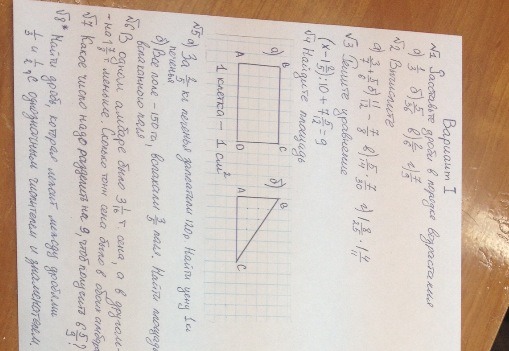 Вариант I
№1 Расставьте дроби в порядке возрастания
а) 1/3 б) 5/36 в) 2/6 г) 7/5
№2 Вычислите
а) 3/4 + 5/8 б) 11/12 − 7/8 в) 5/14 · 7/30 г) 1 8/25 · 1 4/11
№3 Решите уравнение
(x − 1 2/5) · 10 + 7 5/12 = 9
№4 Найдите площадь
а) B C A D
б) B A C
1 клетка – 1 см²
№5 а) За 2/5 кг печенья заплатили 120р. Найти цену 1 кг
печенья
б) Все поле – 150 га, вспахали 2/3 поля. Найти площадь
вспаханного поля
№6 В одном амбаре было 3 1/16 т сена, а в другом –
– на 1 1/8 т меньше. Сколько тонн сена было в обоих амбарах
№7 Какое число надо разделить на 9, чтоб получить 6 5/9?
№8* Найти дробь, которая лежит между дробями
1/3 и 1/2, с однозначным числителем и знаменателем.